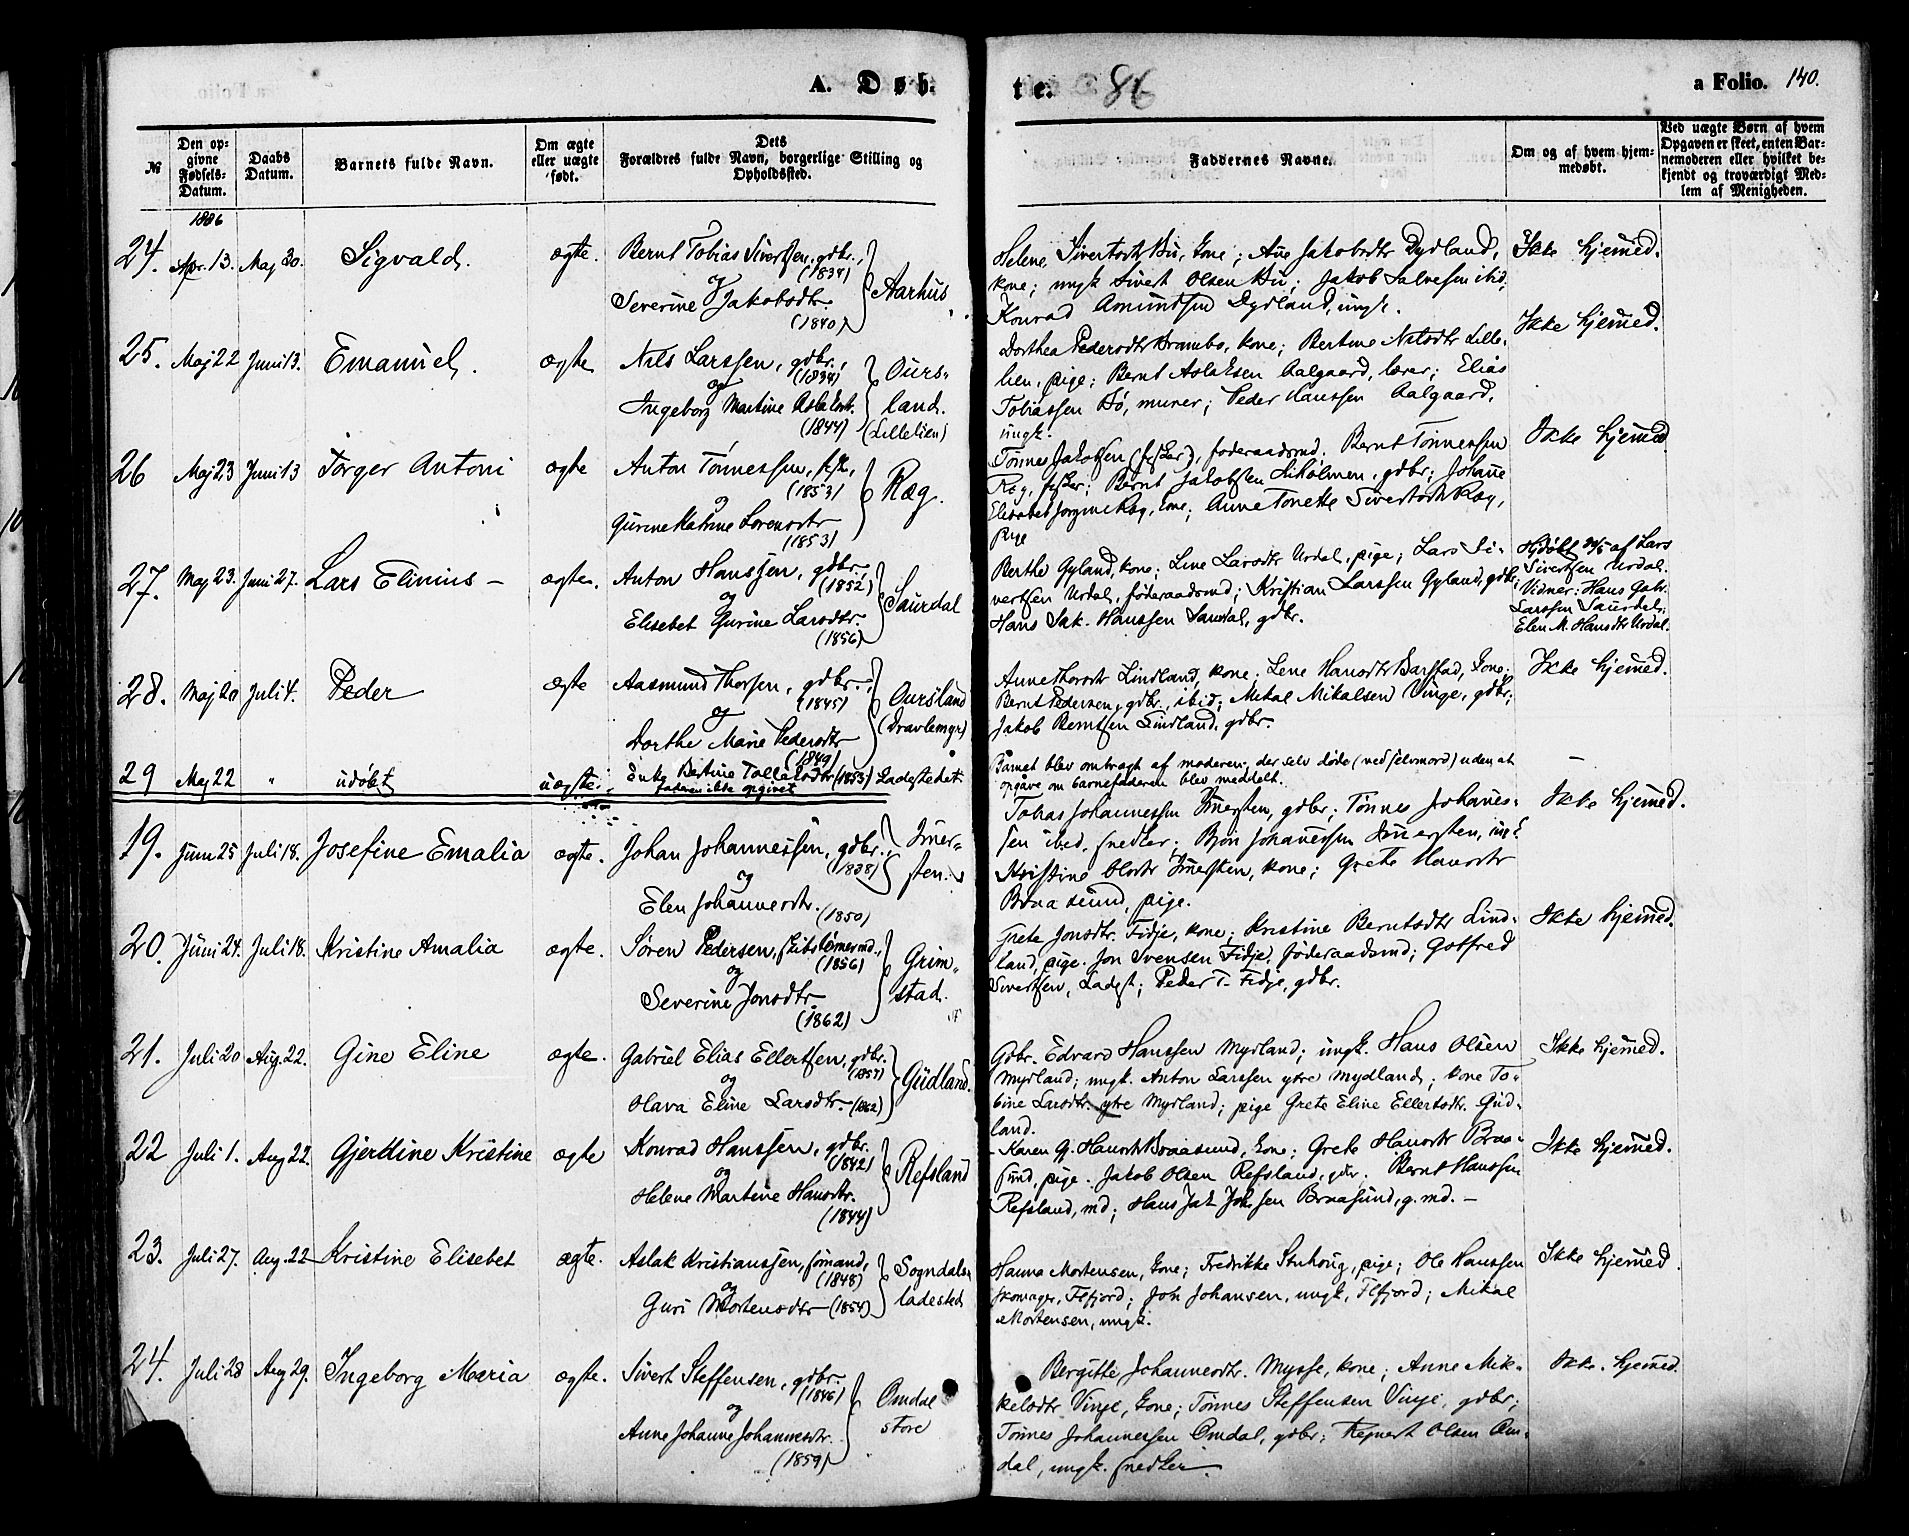 A. Døb-
te. 86
a Folio. 140.
№
Den op-
givne
Fødsels-
Datum.
Daabs
Datum.
Barnets fulde Navn.
Om ægte
eller uægte
født.
Dets
Forældres fulde Navn, borgerlige Stilling og
Opholdssted.
Faddernes Navne.
Om og af hvem hjem-
medøbt.
Ved uægte Børn af hvem
Opgaven er skeet, enten Bar-
nemoderen eller hvilket be-
kjendt og troværdigt Med-
lem af Menigheden.
1886
24. Apr. 13. Maj 30. Sigvald. ægte. Bernt Tobias Sivertsen, gdbr.,
(1834)
og
Severine Jakobsdtr.
(1840)
Aarhus
Helene Sivertsdtr Bu, kone; Ane Jakobsdtr Dydland,
kone; ungk Sivert Olsen Bu; Jakob Salvesen ibid,
Konrad Amundsen Dydland, ungk.
Ikke hjemmed.
25. Maj 22 Juni 13. Emanuel. ægte Nils Larssen, gdbr.,
(1834)
og
Ingeborg Martine
(1844)
Ours-
land.
(Lillelien)
Dorthea Pedersdtr Brambo, kone; Bertine Nilsdtr Lille-
lien, pige; Bernt Aslaksen Aalgaard, lærer; Elias
Tobiassen Bø, murer; Peder Hanssen Aalgaard,
ungk.
Ikke hjemmed.
26 Maj 23 Juni 13 Torger Antoni ægte Anton Tønnessen,
(1853)
og
Gurine Katrine Lorensdtr
(1853)
Ræg.
Tønnes Jakobsen (fisker), føderaadsmd. Bernt Tønnessen
Ræg, fisker; Bernt Jakobsen gdbr; Johanne
Elisabet Jorgine Ræg, kone; Anne Tonette Sivertsdtr Ræg,
pige
Ikke hjemmed
27. Maj 23. Juni 27. Lars Elinius – ægte. Anton Hanssen, gdbr.
(1852)
og
Elisebet Gurine Larsdtr.
(1856)
Saurdal
Berthe Gyland, kone; Line Larsdtr Urdal, pige; Lars Si-
vertsen Urdal, føderaadsmd; Kristian Larssen Gyland, gdbr;
Hans Jak. Hanssen Saurdal, gdbr.
Hjdøbt af Lars
Sivertsen Urdal.
Vidner: Hans Gabr.
Larssen Saurdal,
Elen M. Hansdtr Urdal.
28. Maj 20 Juli 4. Peder ægte Aasmund Thorsen, gdbr.,
(1845)
og
Dorthe Marie Pedersdtr
(1849)
Oursland
(Dravlemyr)
Anne Thorsdtr Lindland, kone; Lene Hansdtr Barstad, kone;
Bernt Pedersen, gdbr, ibid; Mekal Mikalsen Vinge, gdbr;
Jakob Berntsen Lindland, gdbr.
Ikke hjemmed.
29 Maj 22 " udøbt uægte. Enke Bertine Tollaksdtr (1853) Ladestedet
faderen ikke opgivet
Barnet blev ombragt af moderen, der selv døde (ved selvmord) uden at
opgave om barnefaderen blev meddelt.
–
19. Juni 25 Juli 18. Josefine Emalia ægte. Johan Johannessen, gdbr.,
(1838)
og
Elen Johannesdtr.
(1850)
Imer-
sten.
Tobias Johannessen Imersten, gdbr; Tønnes Johannes-
sen ibid, snedker; Bjøn Johannessen Imersten, ungk
Kristine Olsdtr Imersten, kone; Grete Hansdtr
Braasund, pige.
Ikke hjemmed.
20. Juni 24. Juli 18. Kristine Amalia ægte. Søren Pedersen, skibstømmermd.,
(1856)
og
Severine Jonsdtr.
(1862)
Grim-
stad.
Grete Jonsdtr. Fidje, kone; Kristine Berntsdtr Lind-
land, pige. Jon Svensen Fidje, føderaadsmd; Gotfred
Sivertsen, Ladest; Peder T. Fidje, gdbr.
Ikke hjemmed.
21. Juli 20 Aug. 22. Gine Eline ægte. Gabriel Elias Ellertsen, gdbr.
(1857)
og
Olava Eline Larsdtr. (1862)
Gudland.
Gdbr. Edvard Hanssen Mydland; ungk. Hans Olsen
Mydland; ungk. Anton Larssen ytre Mydland; kone To-
bine Larsdtr. ytre Mydland; pige Grete Eline Ellertsdtr. Gud-
land.
Ikke hjemmed.
22 Juli 1. Aug 22. Gjertine Kristine ægte Konrad Hanssen, gdbr.
(1842)
og
Helene Martine Hansdtr.
(1844)
Refsland
– Karen G. Hansdtr Braasund, kone; Grete Hansdtr Braa-
sund, pige. Jakob Olsen Refsland, gdbr. Bernt Hanssen
Refsland, md; Hans Jak Johssen Braasund, g.md. –
Ikke hjemmed.
23. Juli 27. Aug. 22 Kristine Elisebet ægte. Aslak Kristianssen, sømand,
(1848)
og
Guri Mortensdtr (1854)
Sogndals
ladested
Hanna Mortensen, kone; Fredrikke Stuhoug, pige; Ole Hanssen
skomager, Flfjord; Joh Johansen, ungk, Flfjord; Mikal
Mortensen, ungk.
Ikke hjemmed
24. Juli 28 Aug 29. Ingeborg Maria ægte. Sivert Steffensen, gdbr.
(1846)
og
Anne Johanne Johannesdtr.
(1859)
Omdal
store
Bergitte Johannesdtr. Mysse, kone; Anne Mik-
kelsdtr Vinje, kone; Tønnes Steffensen Vinje, gdbr;
Tønnes Johannessen Omdal, gdbr; Regnert Olsen Om-
dal, ungk. snedker.
Ikke hjemmed.